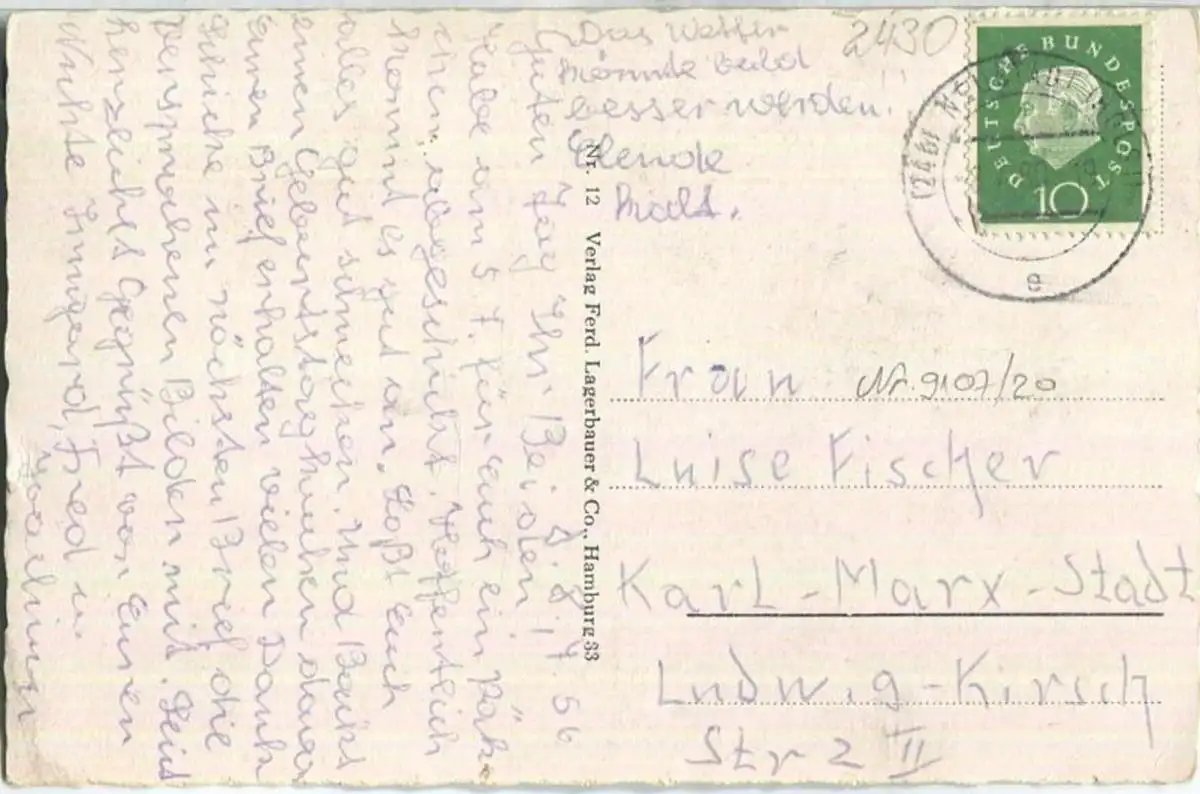 Das Wetter
könnte bald
besser werden.
Elende
kalt.
2430
DEUTSCHE BUNDESPOST
10
(24b)
e
Nr. 12 Verlag Ferd. Lagerbauer & Co., Hamburg 33
Guten Tag Ihr Beiden!
Habe am 5. 7. für Euch ein Päk
chen abgeschickt. Hoffentlich
kommt es gut an. Laßt Euch
alles gut schmecken. Und Backt
einen Geburtstagskuchen davon
Euren Brief erhalten vielen Dank
Schicke im nächsten Brief die
versprochenen Bilder mit. Seid
herzlichst Gegrüßt von Euren
Nichte Irmgard, Fred u.
Joachim
Frau Nr. 9107/20
Luise Fischer
Karl-Marx-Stadt
Ludwig-Kirsch
Str 2 II